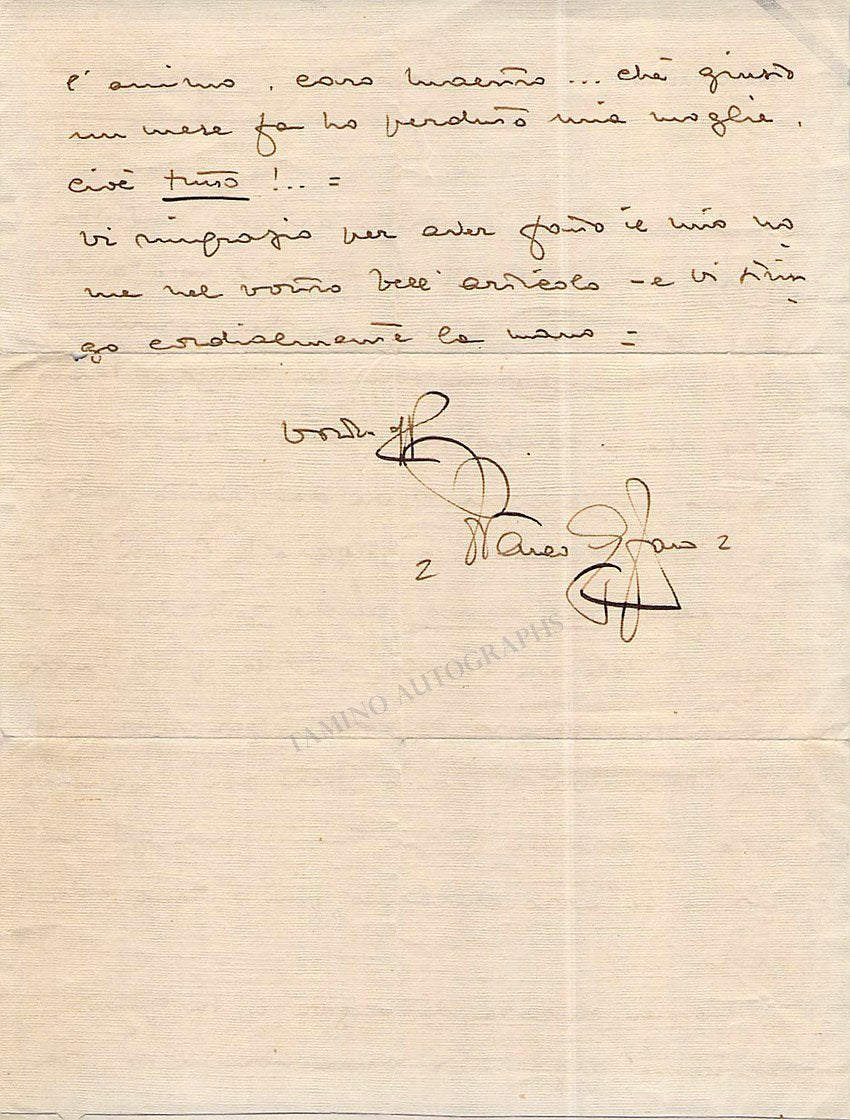 l'animo, caro Maestro... chè giusto
un mese fa ho perduto mia moglie,
cioè tutto!.. =
Vi ringrazio per aver fatto il mio no-
me nel vostro bell'articolo - e vi strin-
go cordialmente la mano =
Vostro
Franco Alfano
TAMINO AUTOGRAPHS